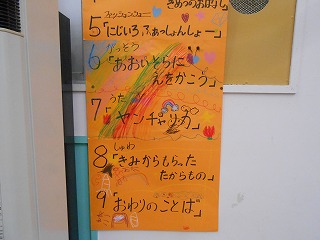 きめつのおはなし
ファッションショー
5「にじいろ ふぁっしょんしょー」
がっそう
6「あおいそらに
えをかこう」
うた
7「ヤンチャリカ」
しゅわ
8「きみからもらった
たからもの」
9「おわりのことば」